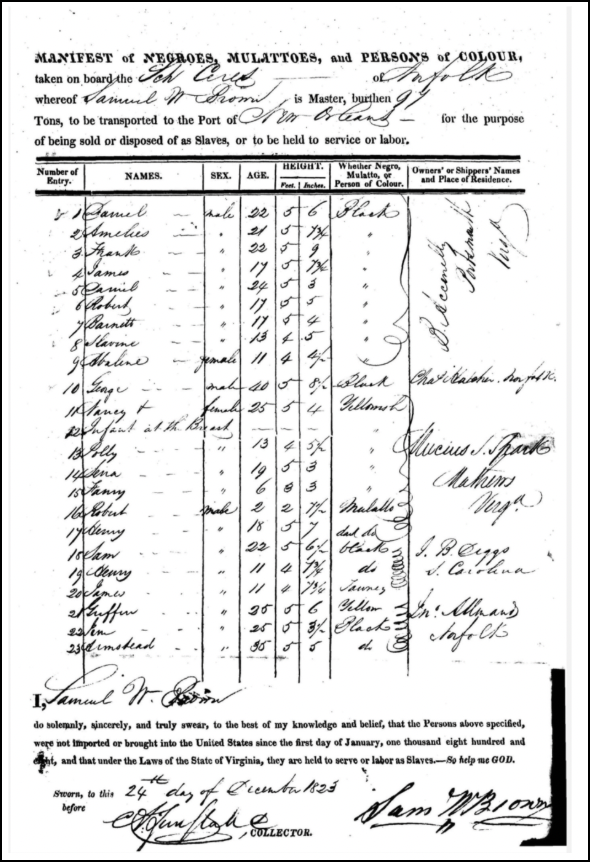 MANIFEST of NEGROES, MULATTOES, and PERSONS of COLOUR,
taken on board the Sch Ceres of Norfolk
whereof Samuel W Brown is Master, burthen 97
Tons, to be transported to the Port of New Orleans for the purpose
of being sold or disposed of as Slaves, or to be held to service or labor.
Number of Entry. NAMES. SEX. AGE. HEIGHT. Feet. Inches. Whether Negro, Mulatto, or Person of Colour. Owners' or Shippers' Names and Place of Residence.
1 Daniel male 22 5 6 Black
2 Amelies " 21 5 7¾ "
3 Frank " 22 5 9 "
4 James " 17 5 7¾ "
5 Daniel " 24 5 3 "
6 Robert " 17 5 5 "
7 Barnett " 17 5 4 "
8 Slavine " 13 4 5 "
9 Abaline female 11 4 4½ "
Portsmouth
Virga
10 George male 40 5 8½ Black Norfolk.
11 Nancy & female 25 5 4 Yellowish
12 Infant at the Breast "
13 Polly " 13 4 5½ "
14 Sena " 19 5 3 "
15 Fanny " 6 3 3 "
16 Robert male 2 2 7½ Mulatto
Mathews
Virga
17 Henry " 18 5 7 dark do
18 Sam " 22 5 6½ black J. B. Diggs
19 Henry " 11 4 7¾ do S. Carolina
20 James " 11 4 7¾ Tawney
21 Griffin " 25 5 6 Yellow Jno. Allmand
22 Jim " 25 5 3½ Black Norfolk
23 Armstead " 35 5 5 do
I, Samuel W. Brown
do solemnly, sincerely, and truly swear, to the best of my knowledge and belief, that the Persons above specified,
were not imported or brought into the United States since the first day of January, one thousand eight hundred and
eight, and that under the Laws of the State of Virginia, they are held to serve or labor as Slaves.—So help me GOD.
Sworn, to this 24th day of December 1823
before
COLLECTOR.
Sam W Brown